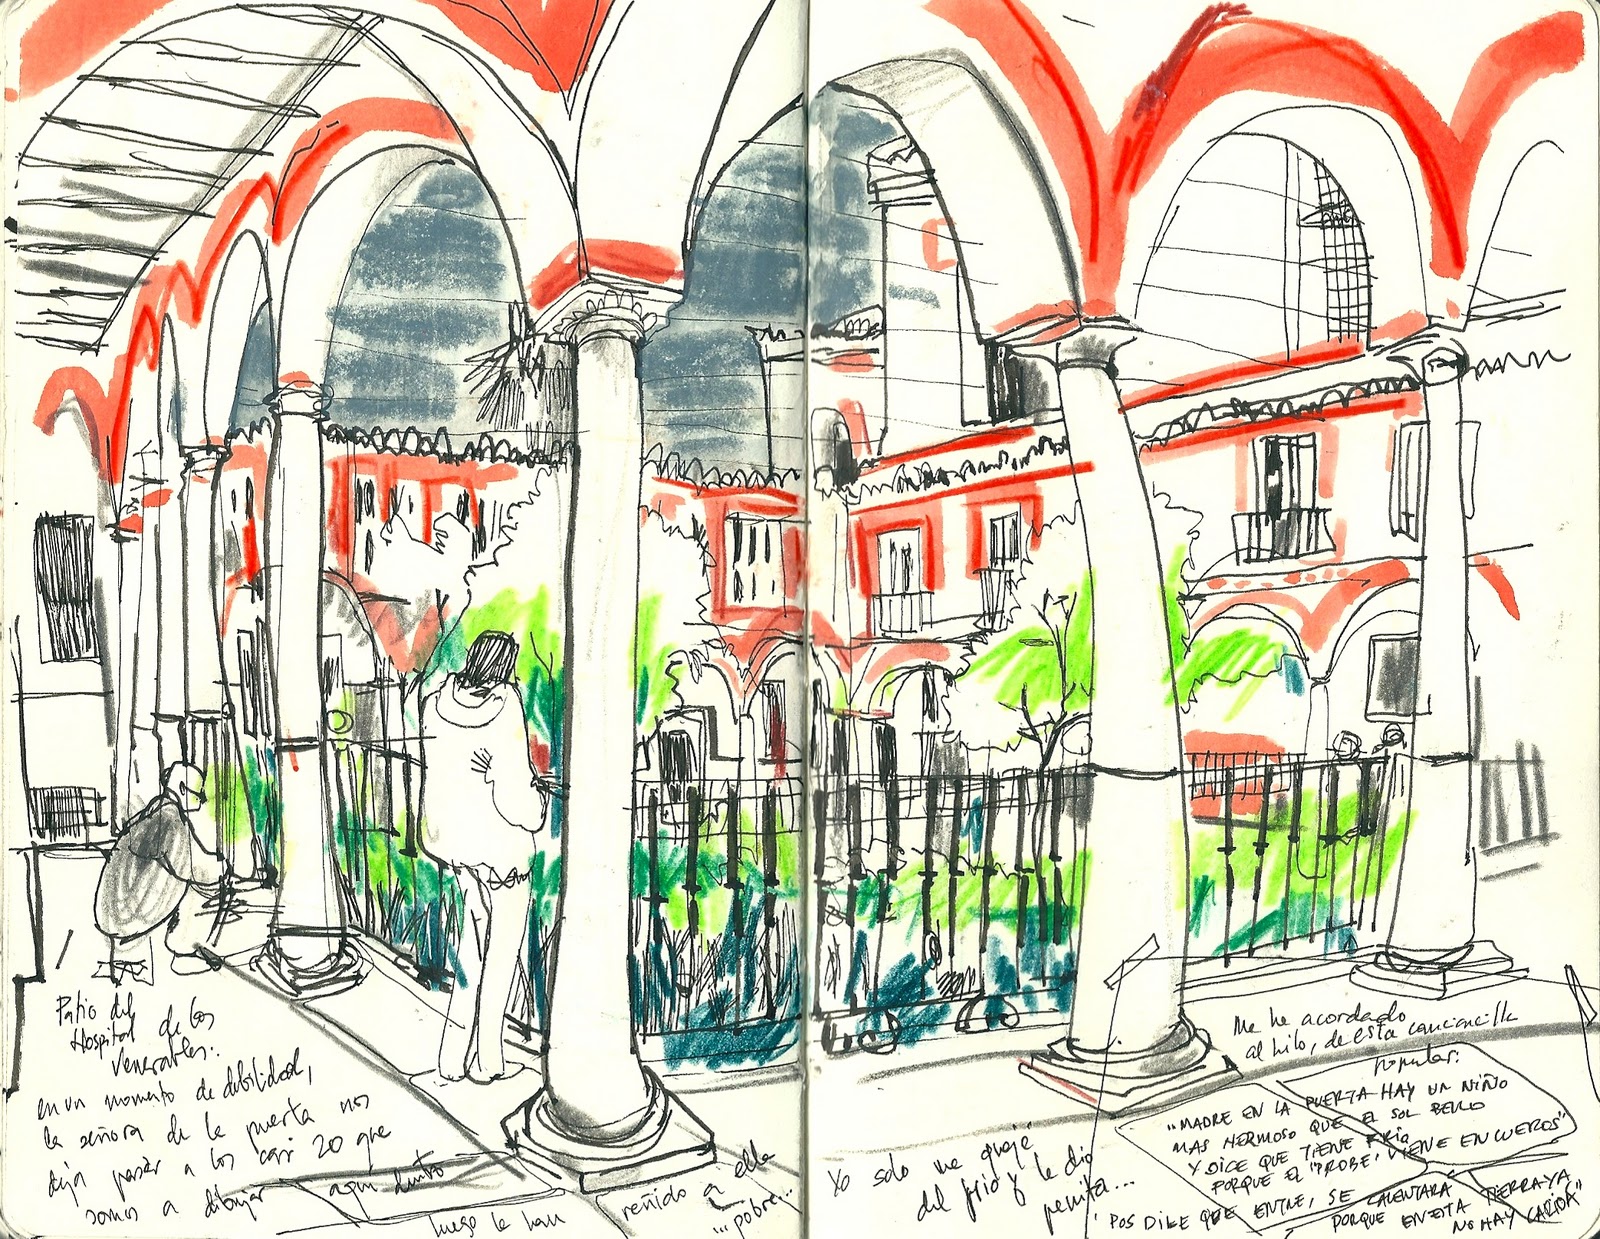 Patio del
Hospital de los
Venerables.
en un momento de debilidad,
la señora de la puerta nos
deja pasar a los casi 20 que
somos a dibujar aquí dentro
luego le han reñido a ella
...pobre...
Yo solo me quejé
del frio y le dio
penita...
Me he acordado
al hilo, de esta cancioncilla
popular:
"MADRE EN LA PUERTA HAY UN NIÑO
MAS HERMOSO QUE EL SOL BELLO
Y DICE QUE TIENE FRIO
PORQUE EL 'PROBE' VIENE EN CUEROS"
'POS DILE QUE ENTRE, SE CALENTARA
PORQUE EN ESTA TIERRA YA
NO HAY CARIDA"